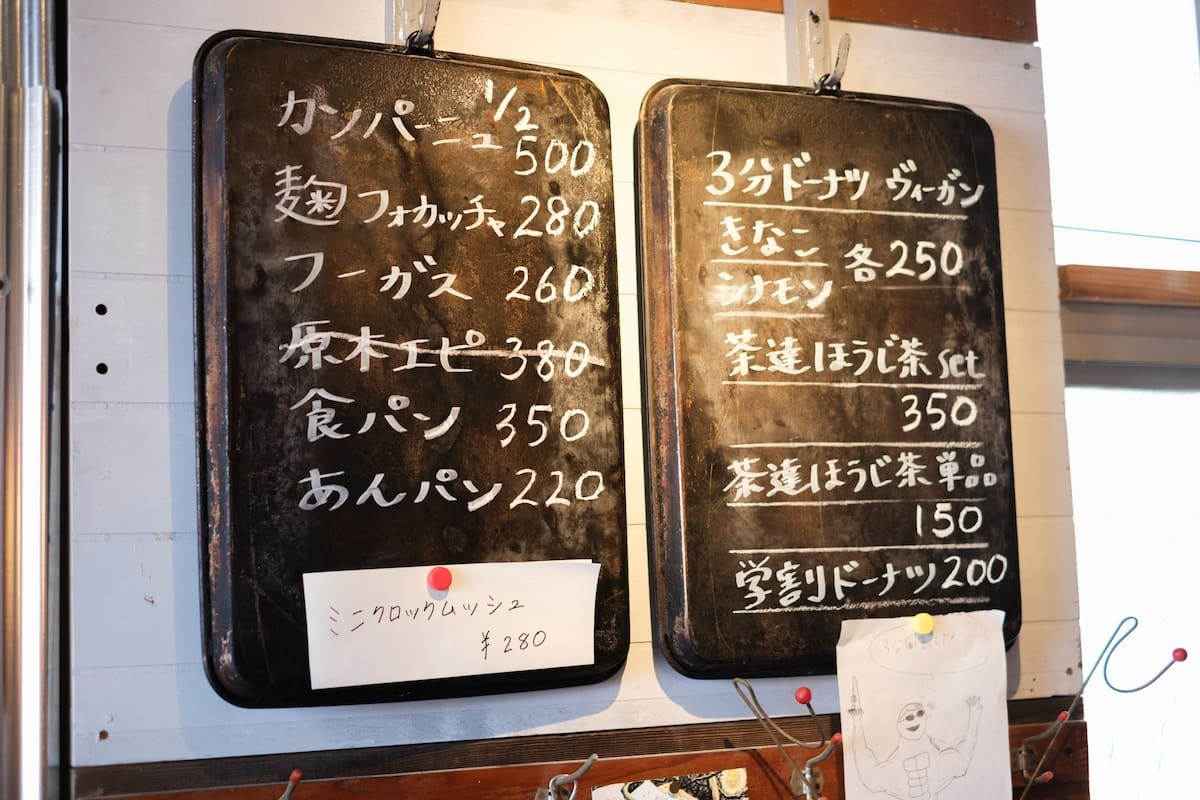 カンパーニュ 1/2
500
麹フォカッチャ 280
フーガス 260
原木エピ 380
食パン 350
あんパン 220
ミニクロックムッシュ
¥280
3分ドーナツ ヴィーガン
きなこ
各250
シナモン
茶達ほうじ茶 set
350
茶達ほうじ茶単品
150
学割ドーナツ 200